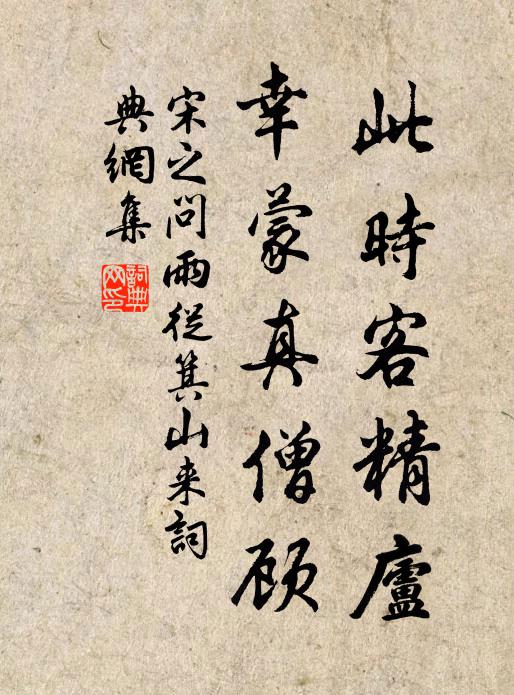 此時客精廬
幸蒙真僧顾
宋之问雨從箕山来詞
典網集
詞典
网印